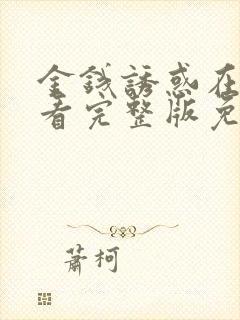 金錢誘惑在
看完整版免
蕭柯